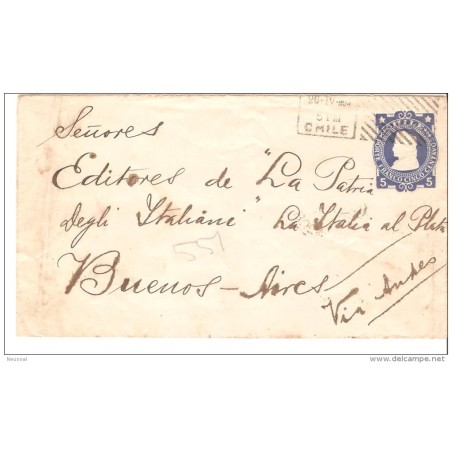 CHILE
Señores
Editores de "La Patria
degli Italiani" La Italia al Plata
Buenos-Aires
Via Andes
551
FRANCO CINCO CENTAVOS
5 5
Neussal
www.delcampe.net